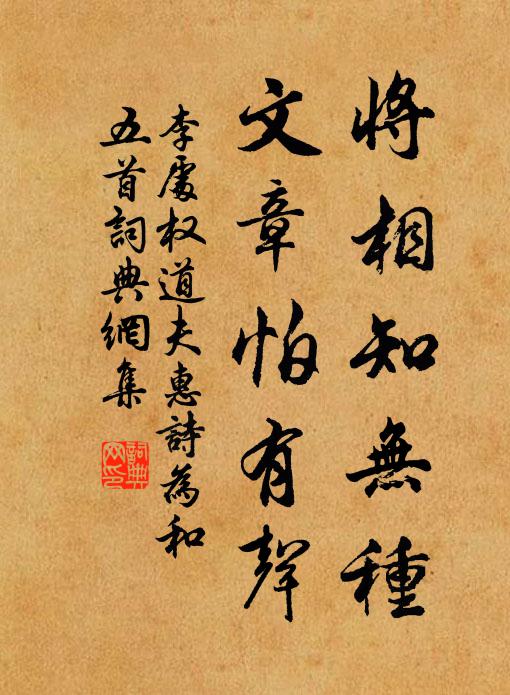 將相知無種
文章怕有聲
李處权道夫惠詩為和
五首詞典網集
詞典
网印